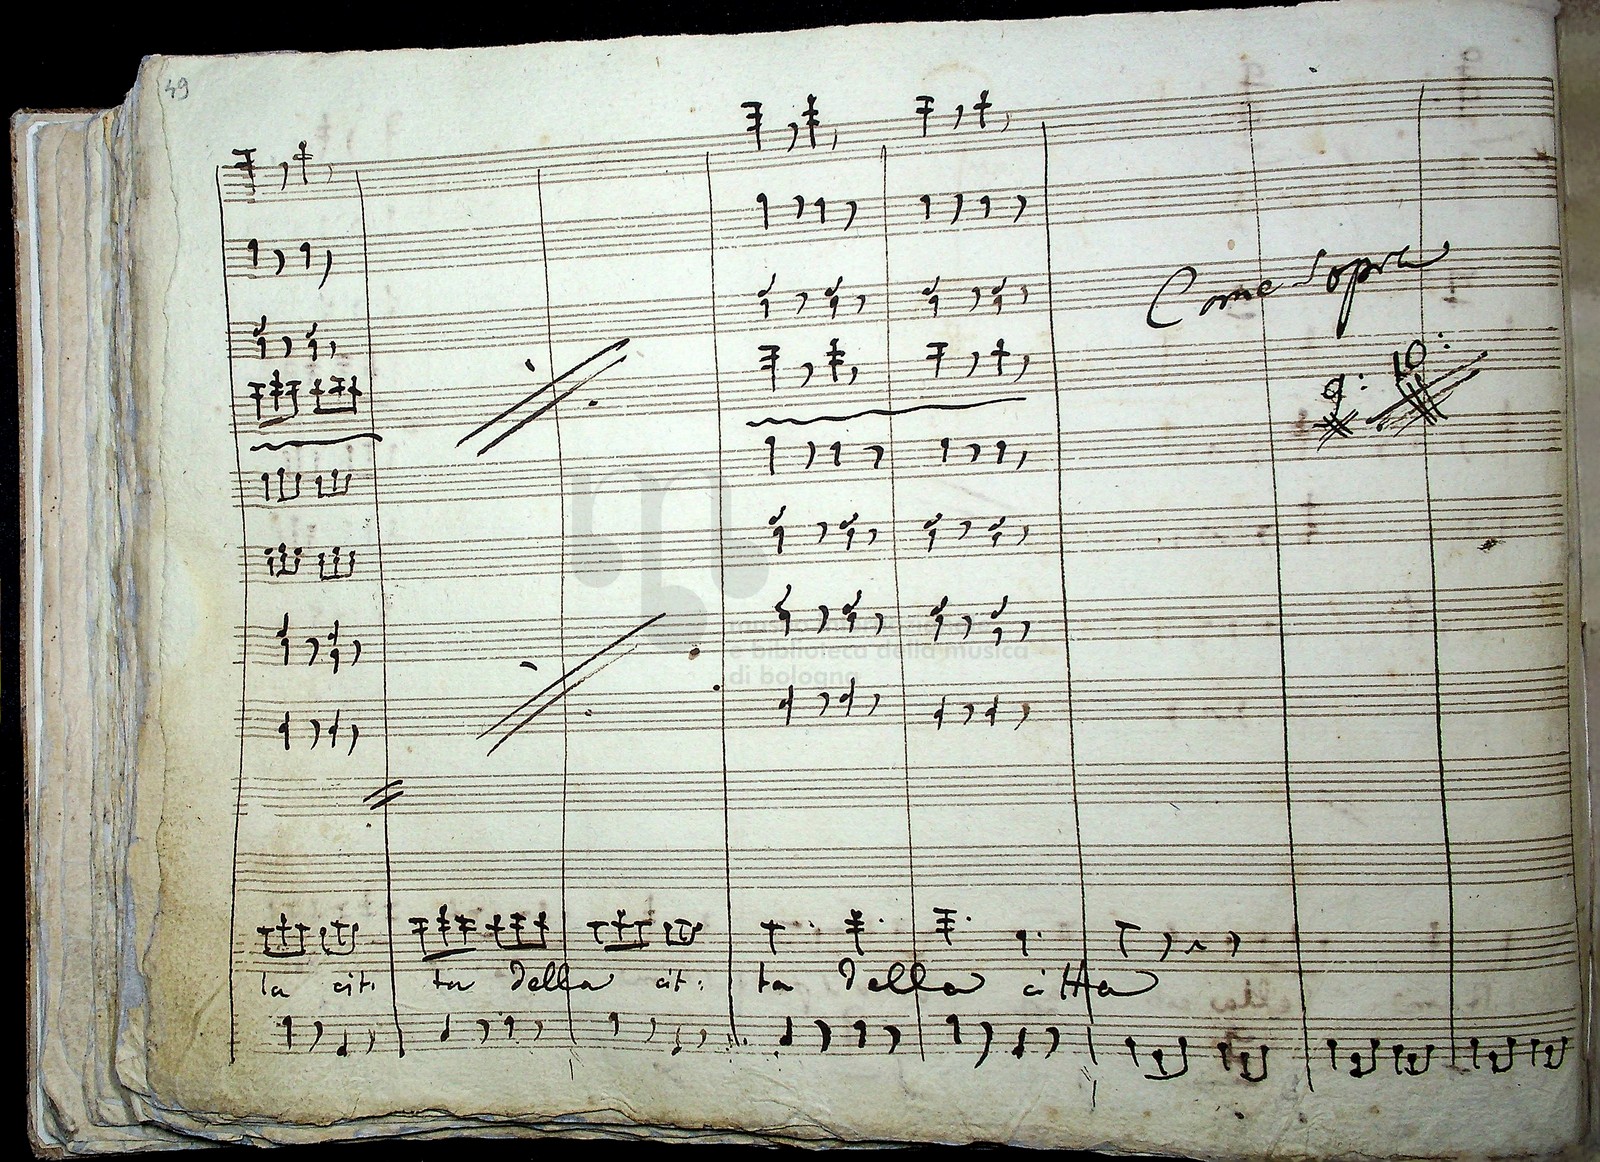 49
Come sopra
9: 10:
museo internazionale
e biblioteca della musica
di bologna
la cit: ta della cit: ta della citta